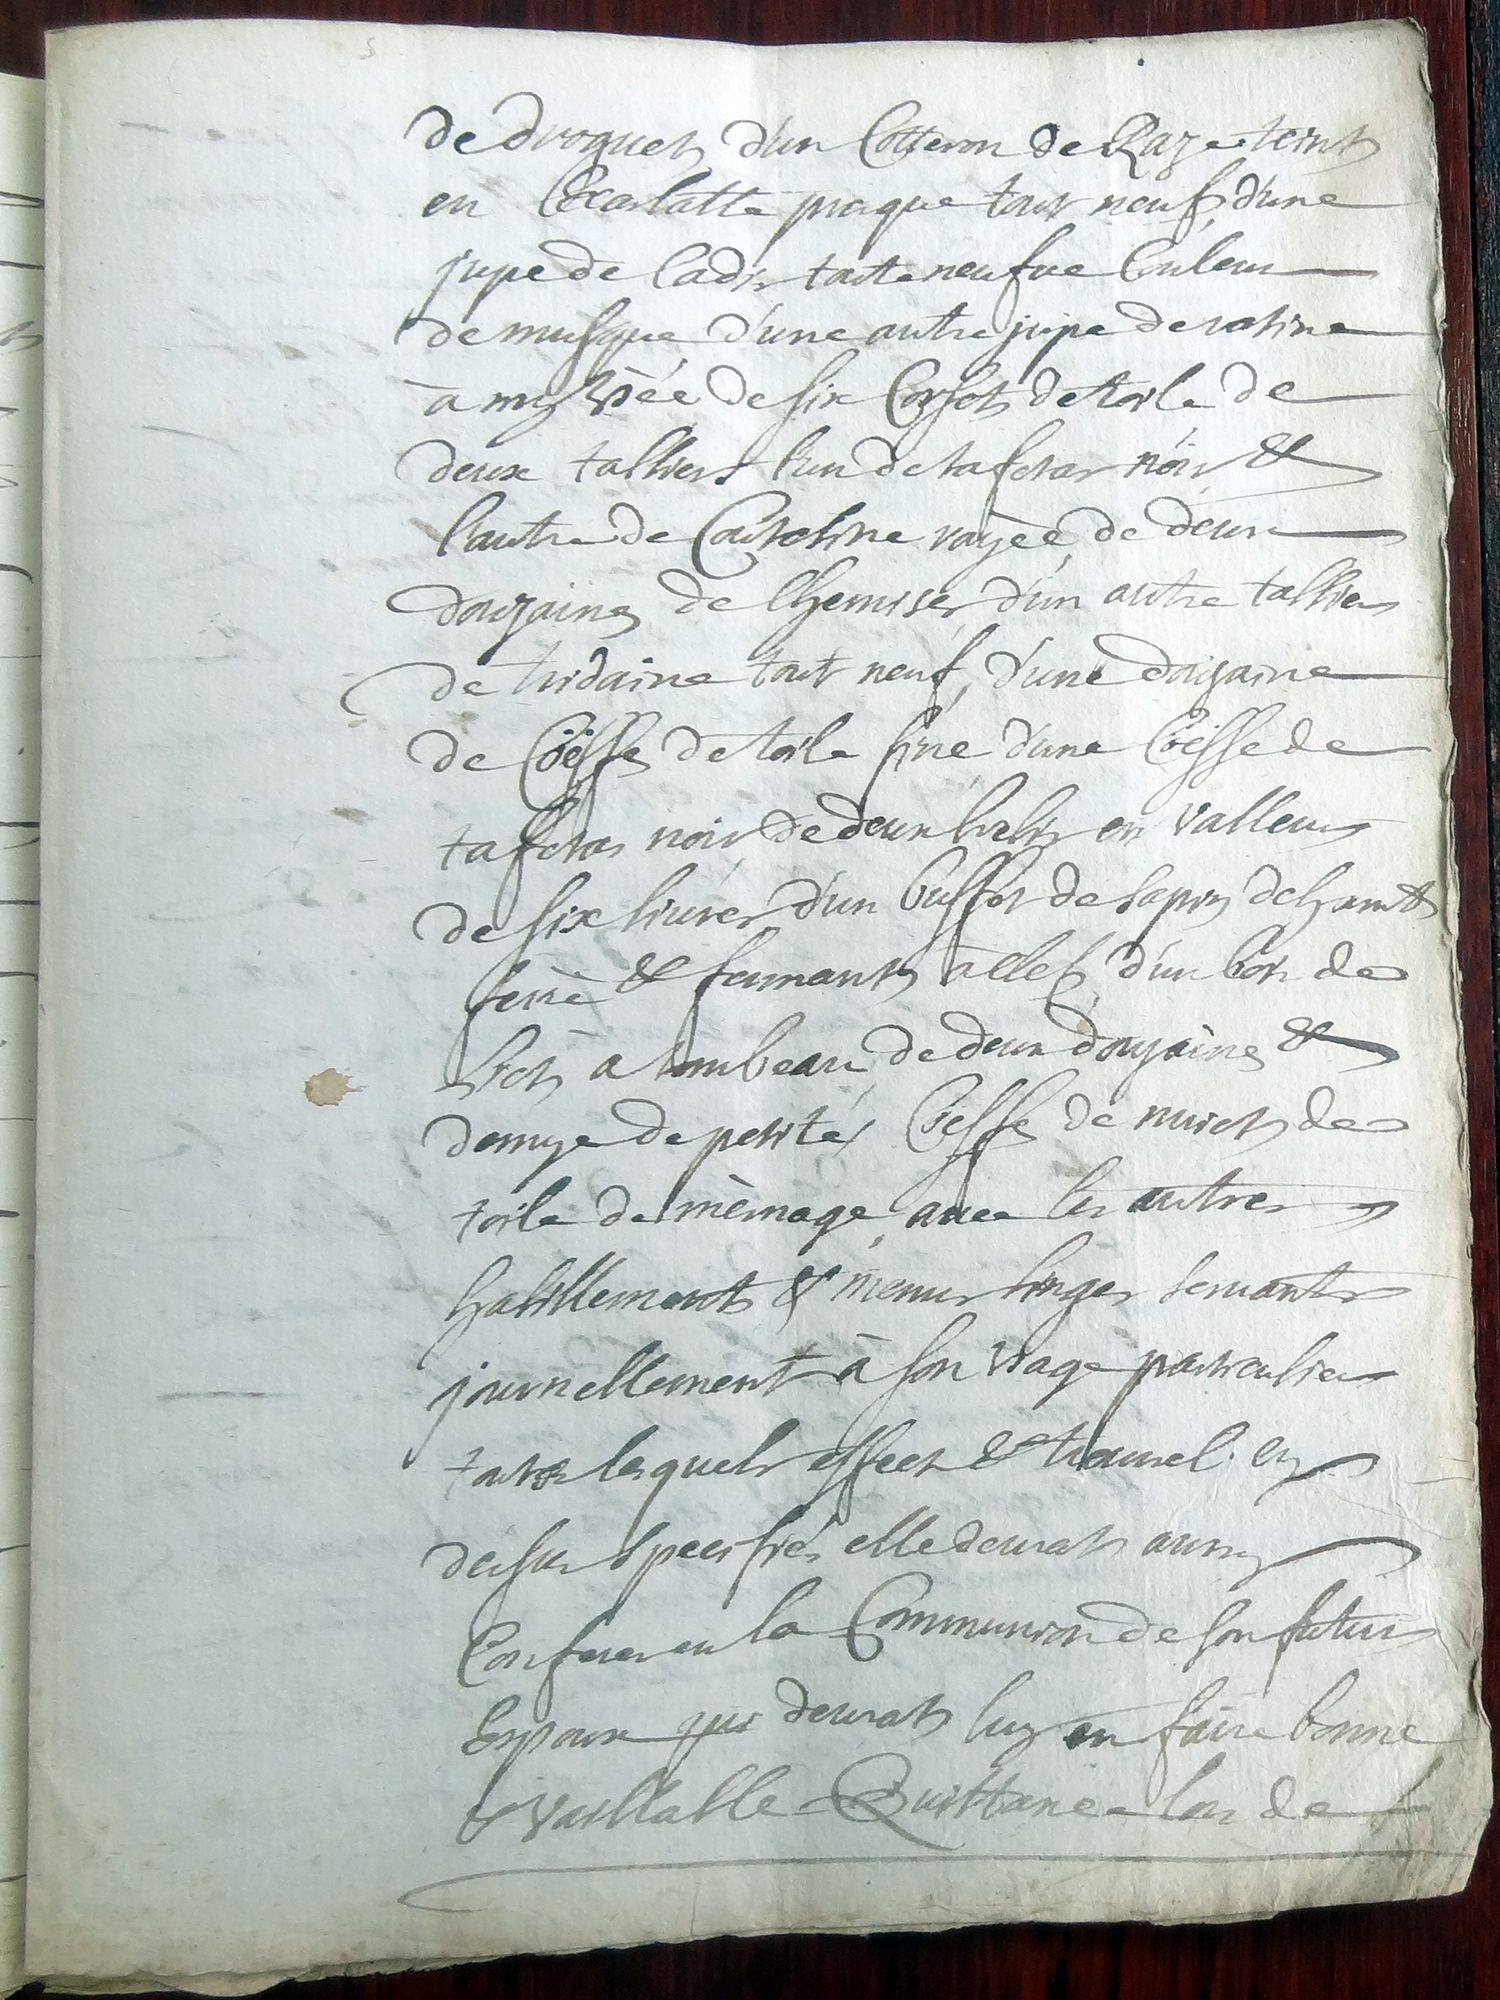 de droguet, d'un Cotteron de Raze teint
en Ecarlatte presque tout neuf, d'une
jupe de Cadis toute neufve Couleur
de musque, d'une autre jupe de ratine
à my Usée de six Corsets de toile de
deux talliers l'un de tafetas noir, &
l'autre de Cauteline rayée, de deux
douzaines de Chemises, d'un autre tallier
de tridaine tout neuf, d'une douzaine
de Coëffes de toile fine d'une Coëffe de
tafetas noir, de deux en valleur
de six livres d'un buffet de sapin
ferré & fermant à clef, d'un bois de
lict, à tombeau, de deux douzaines &
demye de petites Coeffes de nuict de
toile de ménage, avec les autres
habillements & menus linges servants
journellement à son usage particulier
tous lesquels effects & trousel cy
dessus speciffiés elle devrat aussy
Conferer en la Communion de son futur
Espoux qui devrat luy en faire bonne
& vaillable Quittance lors de